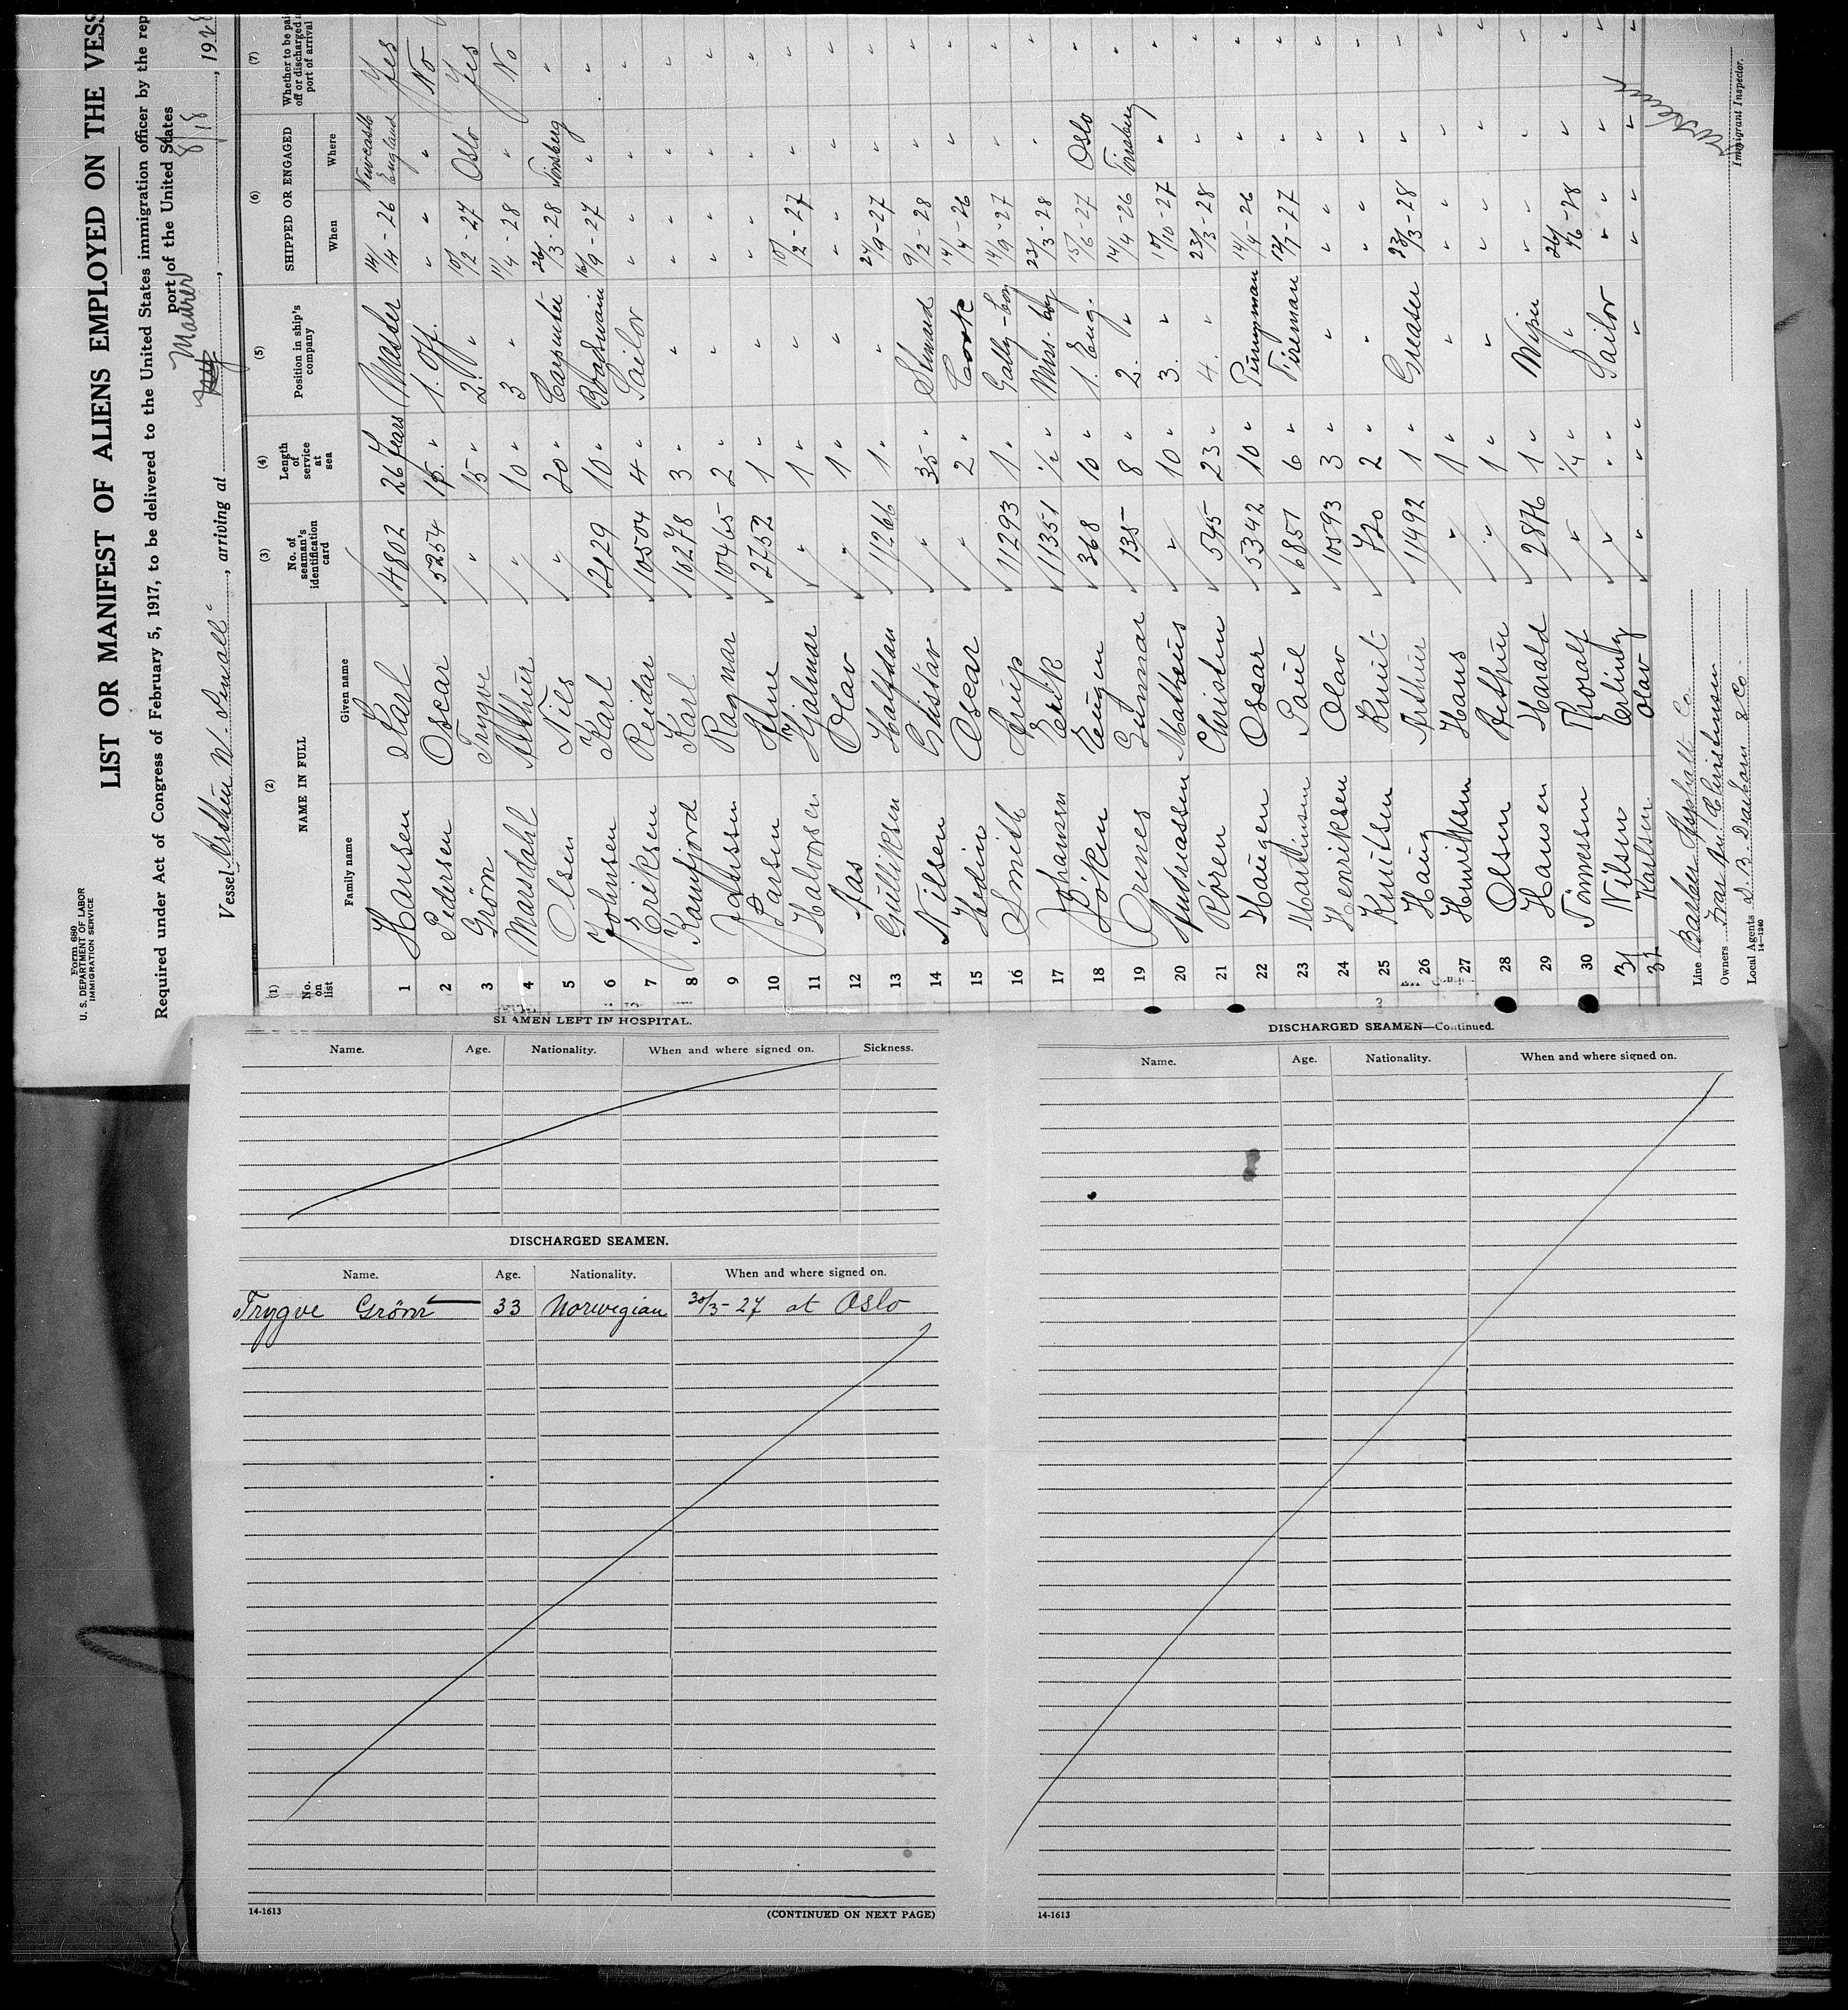 Form 680
U. S. DEPARTMENT OF LABOR
IMMIGRATION SERVICE
LIST OR MANIFEST OF ALIENS EMPLOYED ON THE VESS
Required under Act of Congress of February 5, 1917, to be delivered to the United States immigration officer by the rep
port of the United States
Maurer 8/18
Vessel Arthur W. Sewall, arriving at , 1928
(1) (2) (3) (4) (5) (6) (7)
No. on list NAME IN FULL No. of seaman's identification card Length of service at sea Position in ship's company SHIPPED OR ENGAGED Whether to be pai off or discharged a port of arrival
Family name Given name When Where
1 Hansen Karl 4802 26 years Master 14/4-26 Newcastle England Yes
2 Pedersen Oscar 5254 15 " 1. Off. " " No
3 Grōnn Trygve " 15 " 2. " 10/2-27 Oslo Yes
4 Marsdahl Arthur " 10 " 3 " 11/4-28 " No
5 Olsen Nils " 20 " Carpenter 26/3-28 Tönsberg "
6 Johnsen Karl 2129 10 " Boadswain 16/9-27 " "
7 Eriksen Reidar 10504 4 " Sailor " " "
8 Kamfjord Karl 10278 3 " " " " "
9 Janssen Ragnar 10465 2 " " " " "
10 Larsen Arne 2752 1 " " " " "
11 Halvorsen Hjalmar " 1 " " 10/2-27 " "
12 Aas Olav " 1 " " " " "
13 Gulliksen Halfdan 11266 1 " " 24/9-27 " "
14 Nilsen Gustav " 35 " Steward 9/2-28 " "
15 Hedin Oscar " 2 " Coock 14/4-26 " "
16 Smith 11293 1 " Gally-boy 14/9-27 " "
17 Johansen Erik 11351 1/2 " Mess-boy 23/3-28 " "
18 Böken Eugen 368 10 " 1. Eng. 15/6-27 Oslo "
19 Örenes Gunnar 135 8 " 2. " 14/4-26 Tönsberg "
20 Andreassen Matheus " 10 " 3. " 10/10-27 " "
21 Rören Christen 545 23 " 4. " 23/3-28 " "
22 Haugen Ossar 5342 10 " Pumpman 14/4-26 " "
23 Marthinsen Paul 6851 6 " Fireman 12/7-27 " "
24 Henriksen Olav 10593 3 " " " " "
25 Knutsen Knut 720 2 " " " " "
26 Haug Arthur 11492 1 " Greaser 23/3-28 " "
27 Henriksen Hans " 1 " " " " "
28 Olsen Arthur " 1 " " " " "
29 Hansen Harald 2876 1 " Wiper " " "
30 Tönnessen Thoralf " 1/4 " " 26/6-28 " "
31 Nilsen Erling " " " Sailor " " "
32 Karlsen Olav " " " " " " "
Line Barber Asphalt Co.
Owners Fred. Christensen
Local Agents & Co.
14-1240
Immigrant Inspector.
SEAMEN LEFT IN HOSPITAL.
Name. Age. Nationality. When and where signed on. Sickness.
DISCHARGED SEAMEN.
Name. Age. Nationality. When and where signed on.
Trygve Grönn 33 Norwegian 30/3-27 at Oslo
14-1613 (CONTINUED ON NEXT PAGE)
DISCHARGED SEAMEN—Continued.
Name. Age. Nationality. When and where signed on.
14-1613